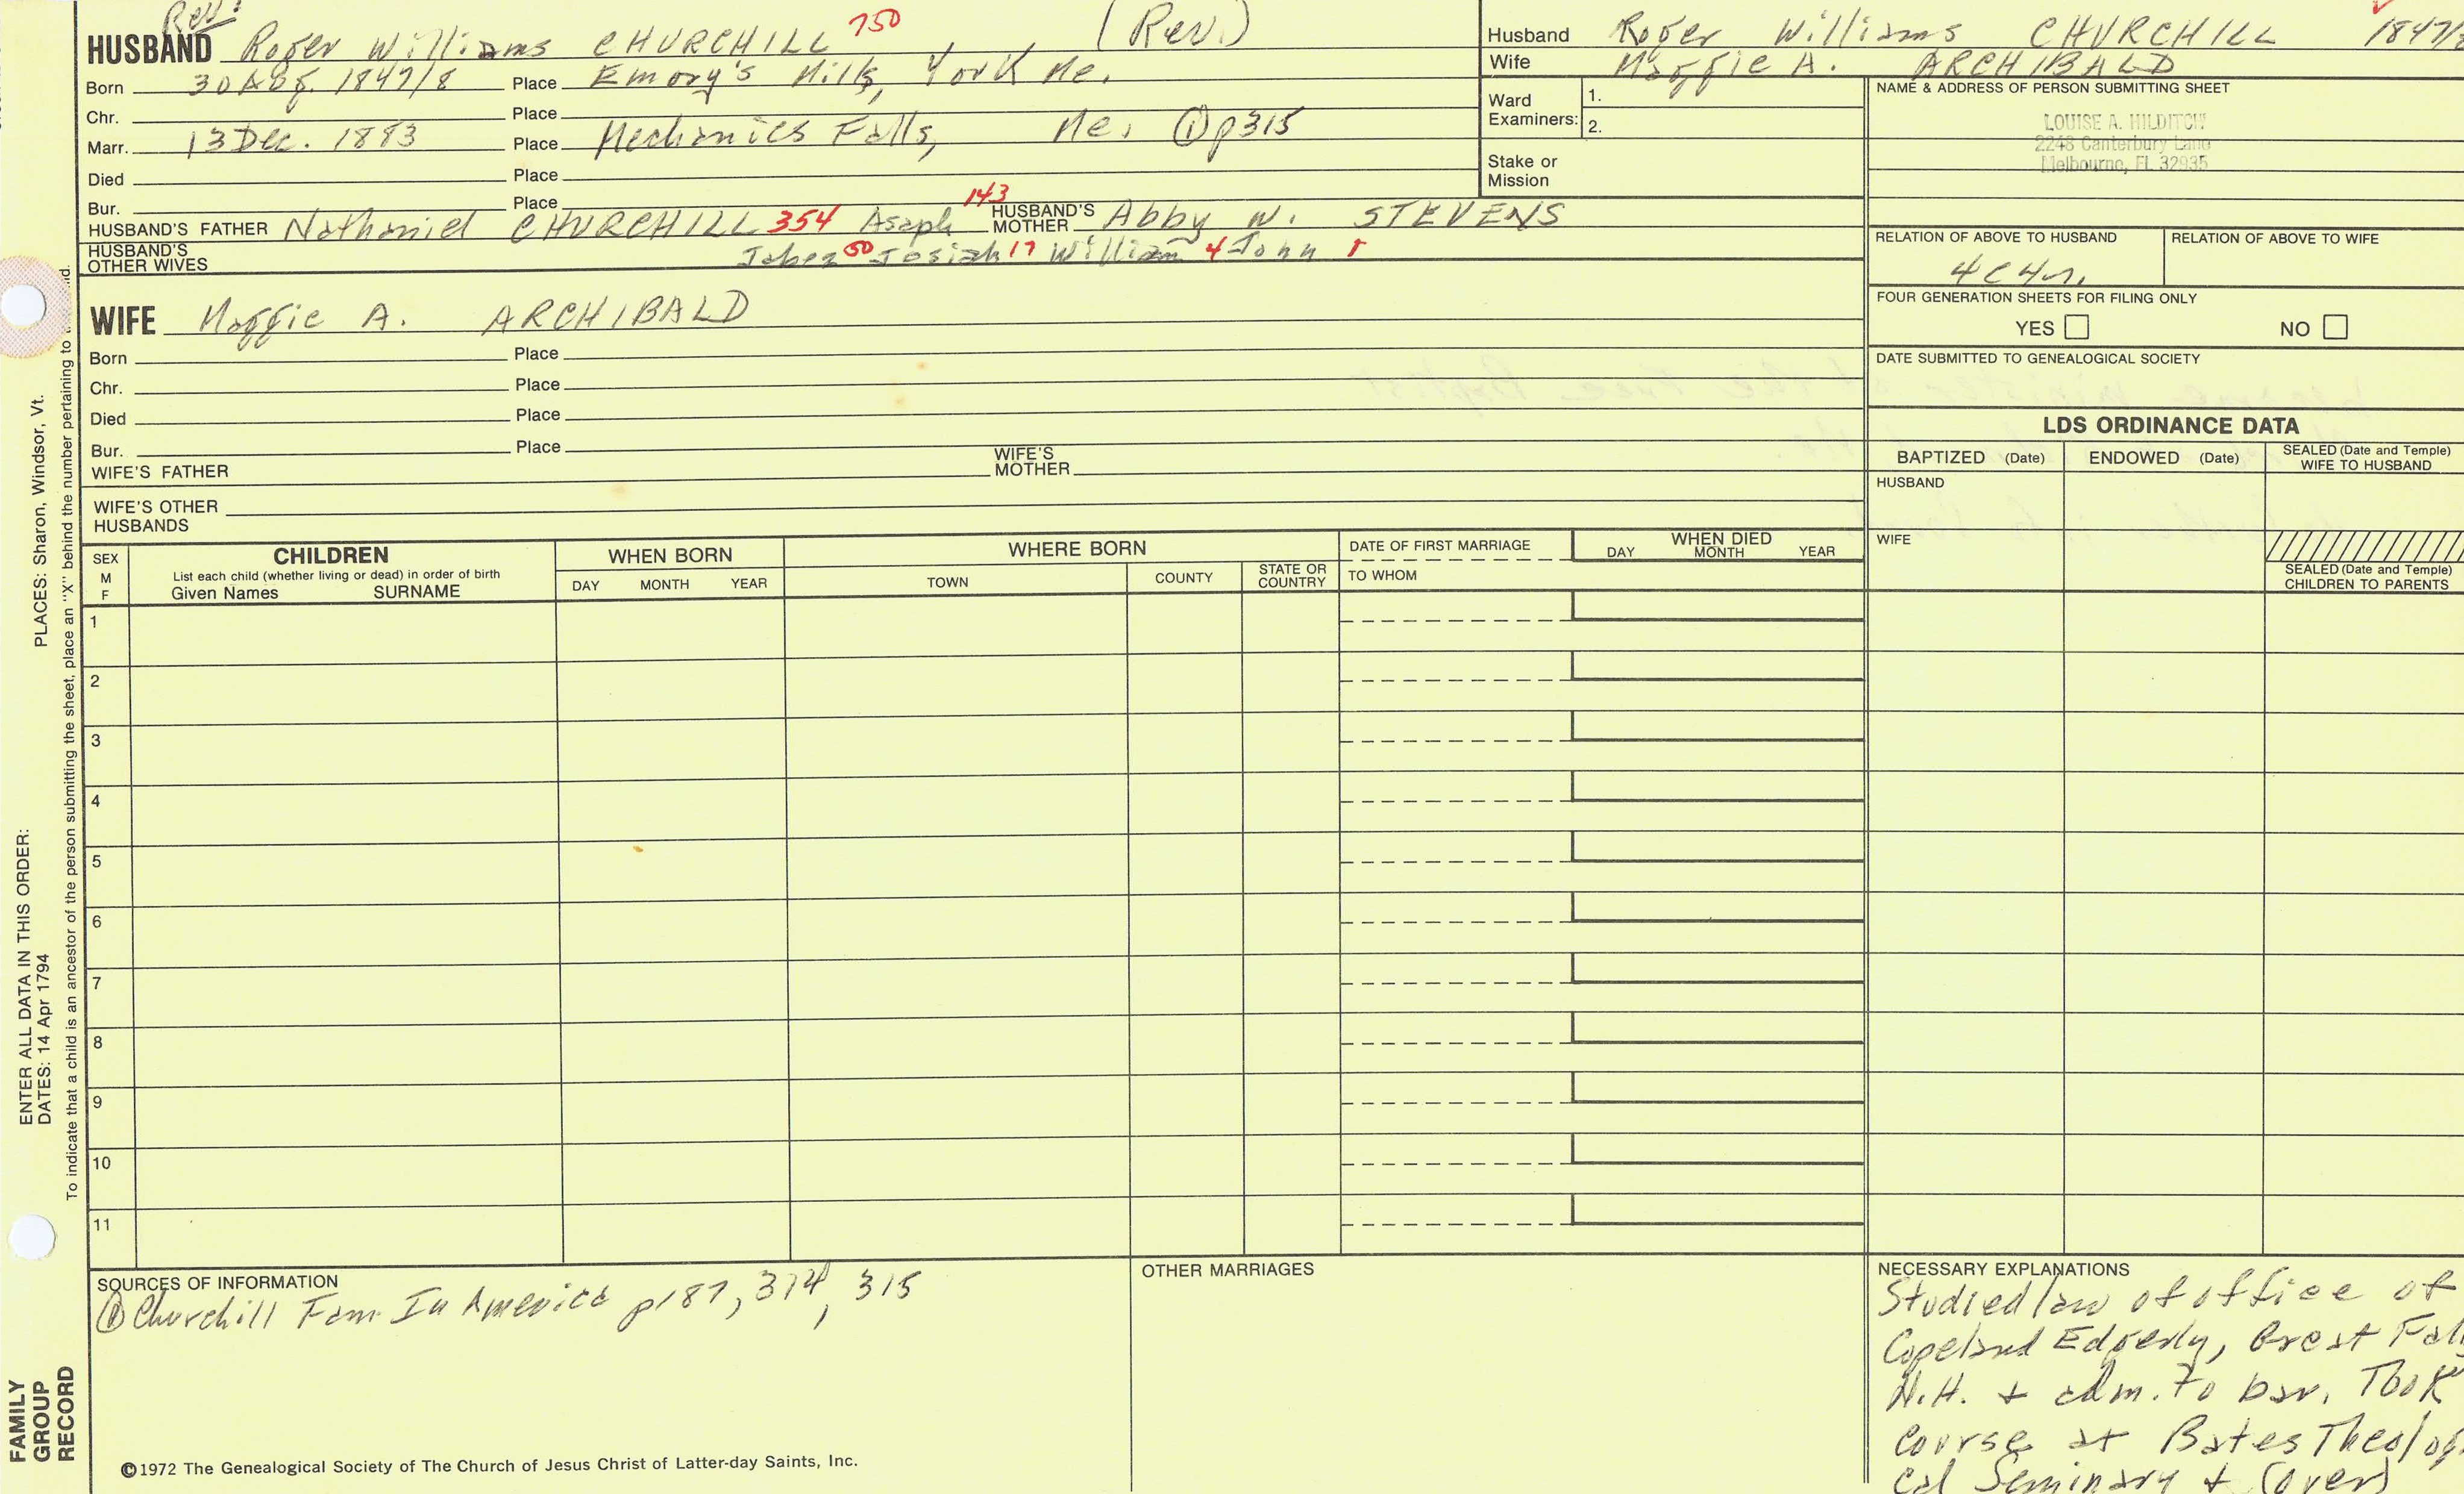 Rev.
HUSBAND Roger Williams CHURCHILL 750 (Rev.)
Born 30 Aug. 1847/8 Place Emory's Mills, York Me.
Chr. Place
Marr. 13 Dec. 1883 Place Mechanics Falls, Me. ① p315
Died Place
Bur. Place
HUSBAND'S FATHER Nathaniel CHURCHILL 354 Asaph 143 HUSBAND'S MOTHER Abby W. STEVENS
HUSBAND'S OTHER WIVES Jabez 50 Josiah 17 William 4 John 1
Husband Roger Williams CHURCHILL 1847/8
Wife Maggie A. ARCHIBALD
Ward Examiners: 1.
2.
Stake or Mission
NAME & ADDRESS OF PERSON SUBMITTING SHEET
LOUISE A. HILDITCH
2248 Canterbury Lane
Melbourne, FL 32935
RELATION OF ABOVE TO HUSBAND RELATION OF ABOVE TO WIFE
4C4r.
FOUR GENERATION SHEETS FOR FILING ONLY
YES NO
DATE SUBMITTED TO GENEALOGICAL SOCIETY
WIFE Maggie A. ARCHIBALD
Born Place
Chr. Place
Died Place
Bur. Place
WIFE'S FATHER WIFE'S MOTHER
WIFE'S OTHER HUSBANDS
LDS ORDINANCE DATA
BAPTIZED (Date) ENDOWED (Date) SEALED (Date and Temple) WIFE TO HUSBAND
HUSBAND
WIFE
SEALED (Date and Temple) CHILDREN TO PARENTS
SEX M F
CHILDREN
List each child (whether living or dead) in order of birth
Given Names SURNAME
WHEN BORN
DAY MONTH YEAR
WHERE BORN
TOWN COUNTY STATE OR COUNTRY
DATE OF FIRST MARRIAGE
TO WHOM
WHEN DIED
DAY MONTH YEAR
1
2
3
4
5
6
7
8
9
10
11
SOURCES OF INFORMATION
① Churchill Fam In America p187, 314, 315
OTHER MARRIAGES
NECESSARY EXPLANATIONS
Studied law of office of
Copeland Edgerly, Great Fal
N.H. + adm. to bar. Took
course at Bates Theolog
cal Seminary + (over)
©1972 The Genealogical Society of The Church of Jesus Christ of Latter-day Saints, Inc.
ENTER ALL DATA IN THIS ORDER:
DATES: 14 Apr 1794 PLACES: Sharon, Windsor, Vt.
To indicate that a child is an ancestor of the person submitting the sheet, place an "X" behind the number pertaining to
FAMILY
GROUP
RECORD